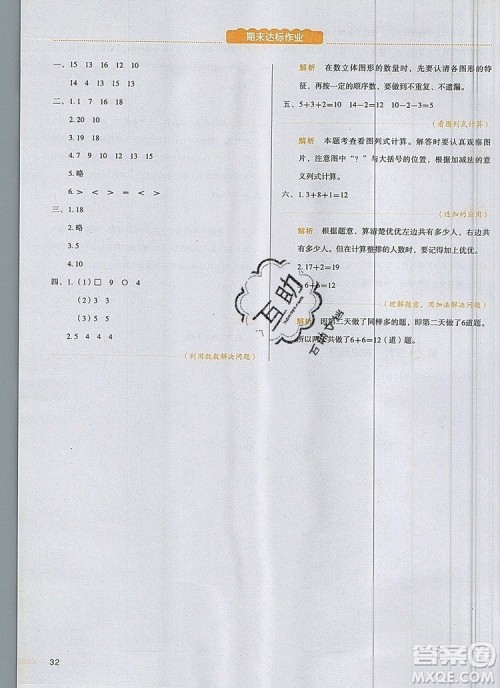 期末达标作业
一、15 13 16 12 10
14 9 5 9 4
二、1. 1 7 16 18
2. 20 9
3. 4 2
4. 15 19
5. 略
6. > < > = < >
三、1. 18
2. 略
3. 略
4. 5
5. 10
四、1.（1）□ 9 ○ 4
（2）3 3
（3）5
2. 5 4 4 4
（利用数数解决问题）
解析 在数立体图形的数量时，先要认清各图形的特
征，再按一定的顺序数，要做到不重复、不遗漏。
五、5+3+2=10 14-2=12 10-2-3=5
（看图列式计算）
解析 本题考查看图列式计算。解答时要认真观察图
片，注意图中“？”与大括号的位置，根据加减法的意
义列式计算。
六、1. 3+8+1=12
（连加的应用）
解析 根据题意，算清楚优优左边共有多少人，右边共
有多少人。但是在计算整排的人数时，要记得加上优优。
2. 17+2=19
3. 6+6=12
（理解题意，用加法解决问题）
解析 因第二天做了同样多的题，即第二天做了6道题。
所以两天共做了6+6=12（道）题。
互助
32
答案圈
MXQE.COM